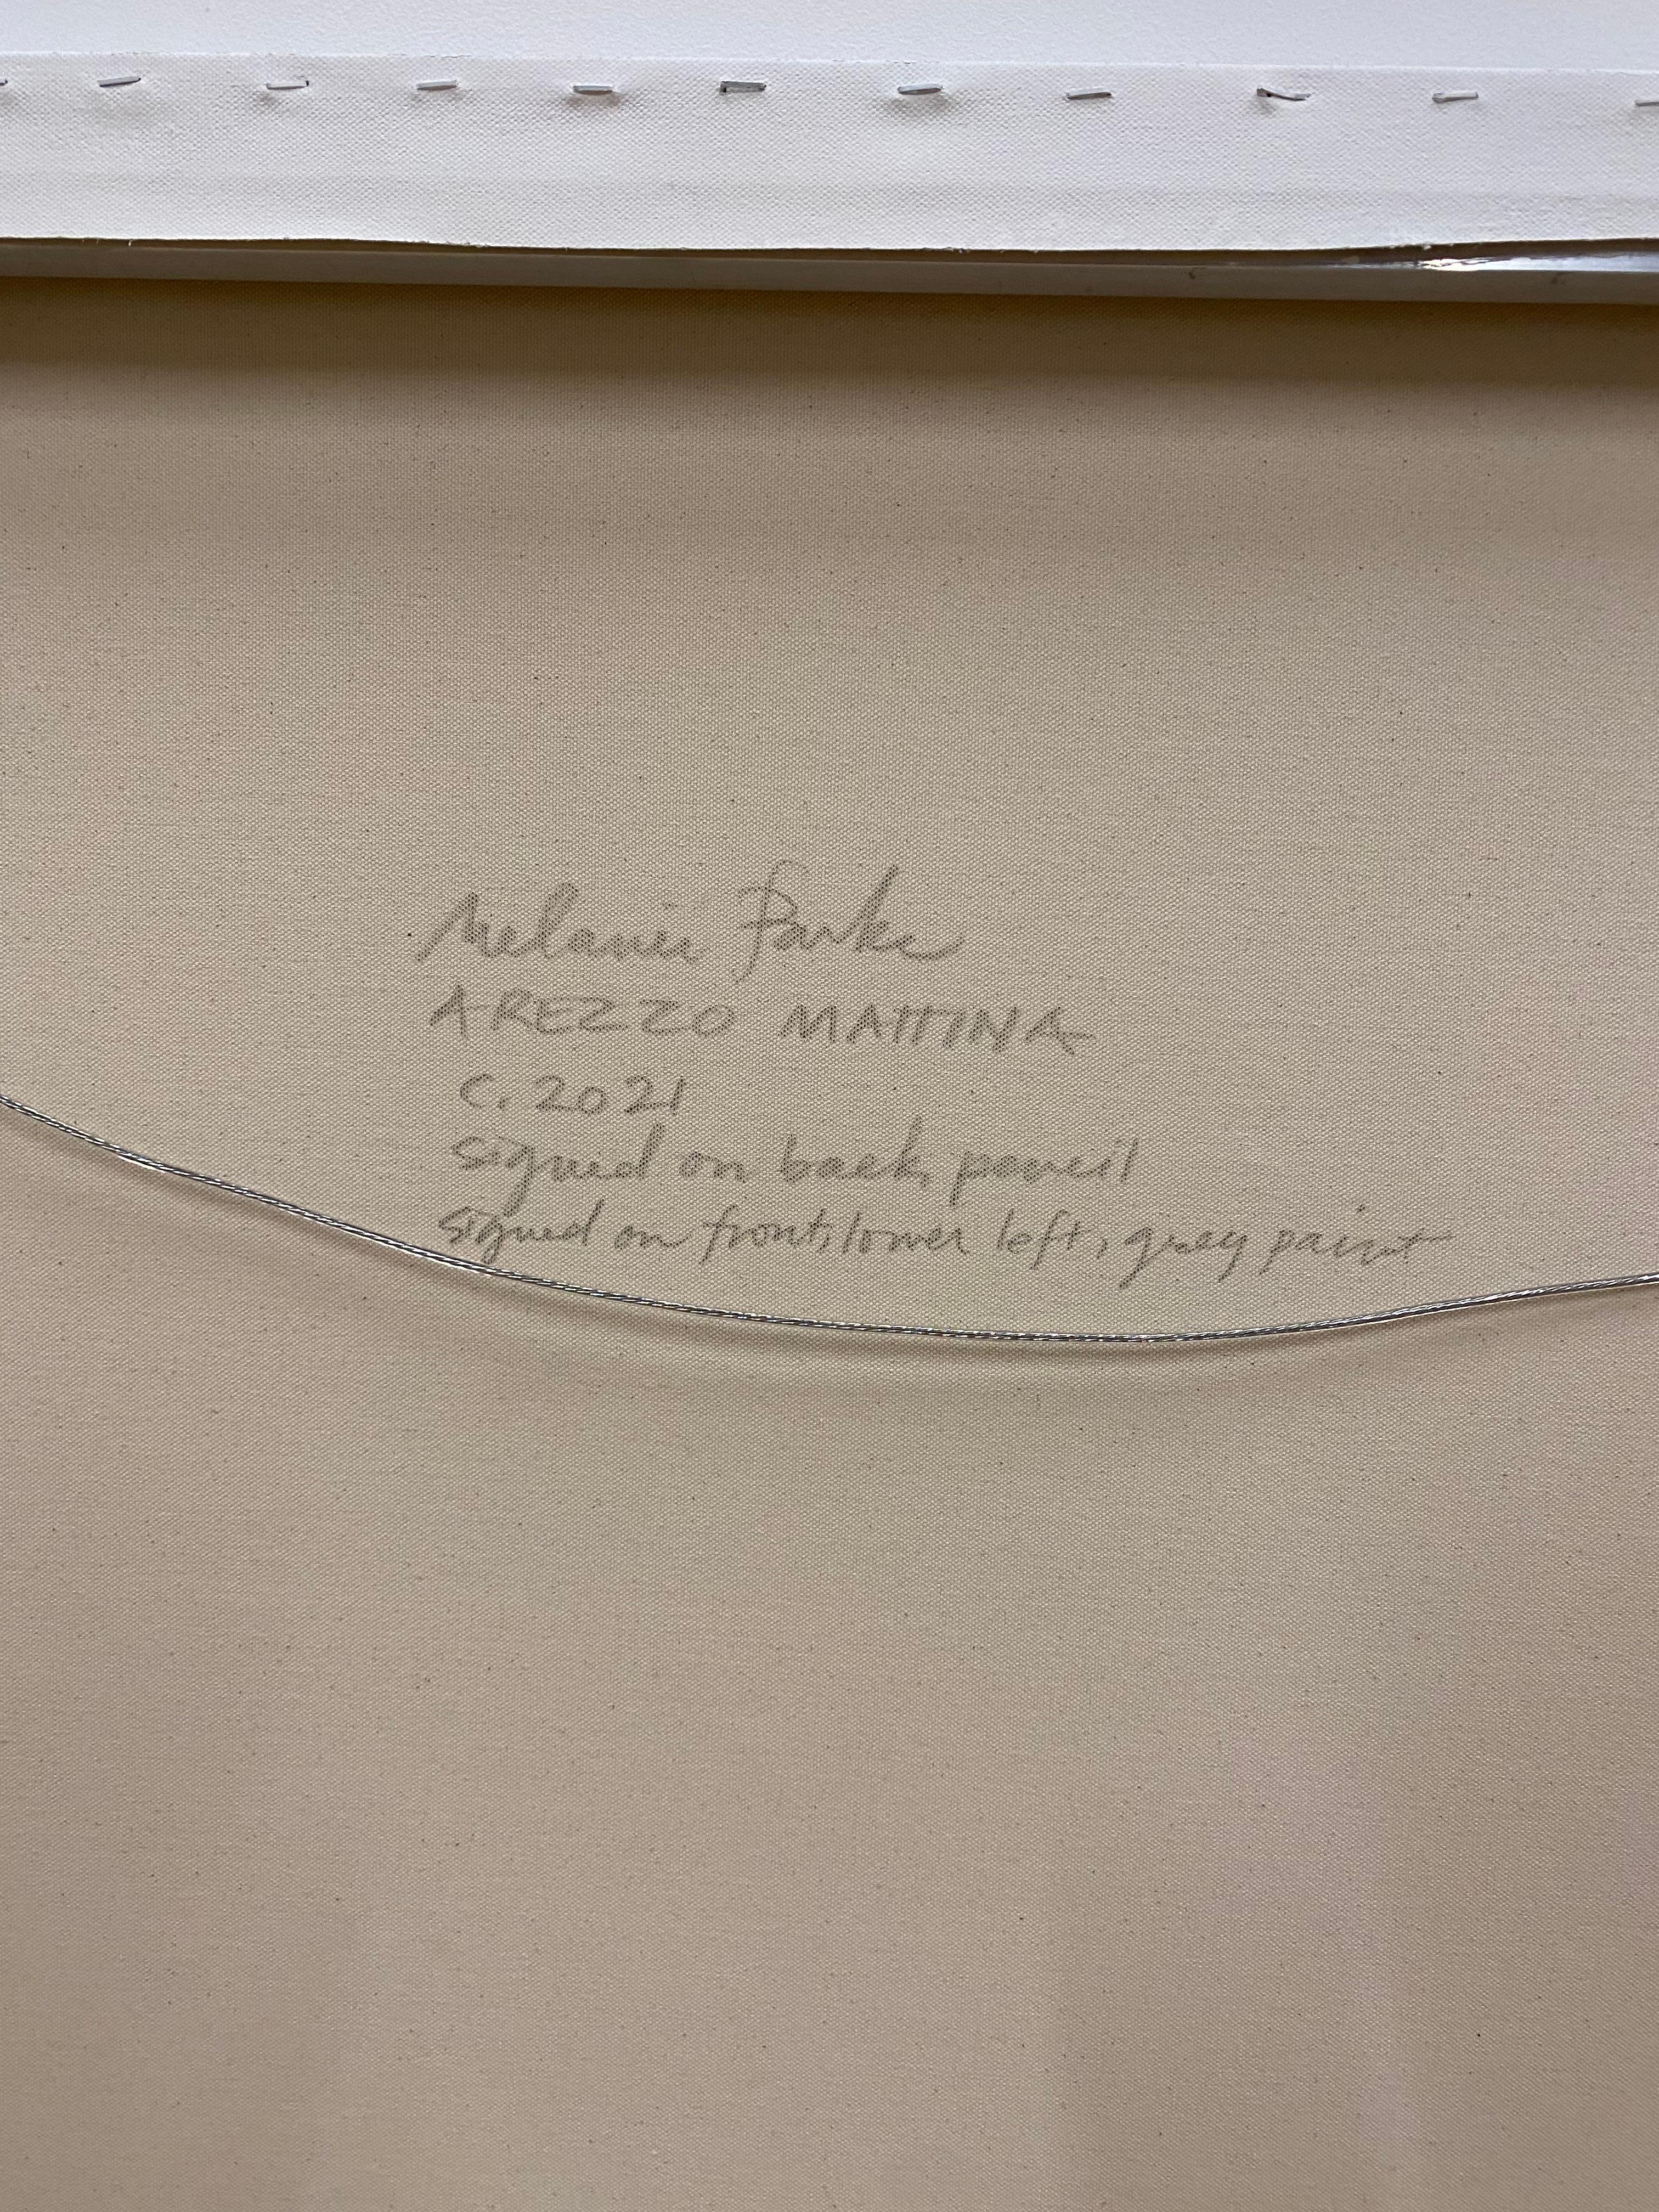 Melanie Parke
AREZZO MATTINA
C. 2021
signed on back, pencil
signed on front, lower left, grey paint